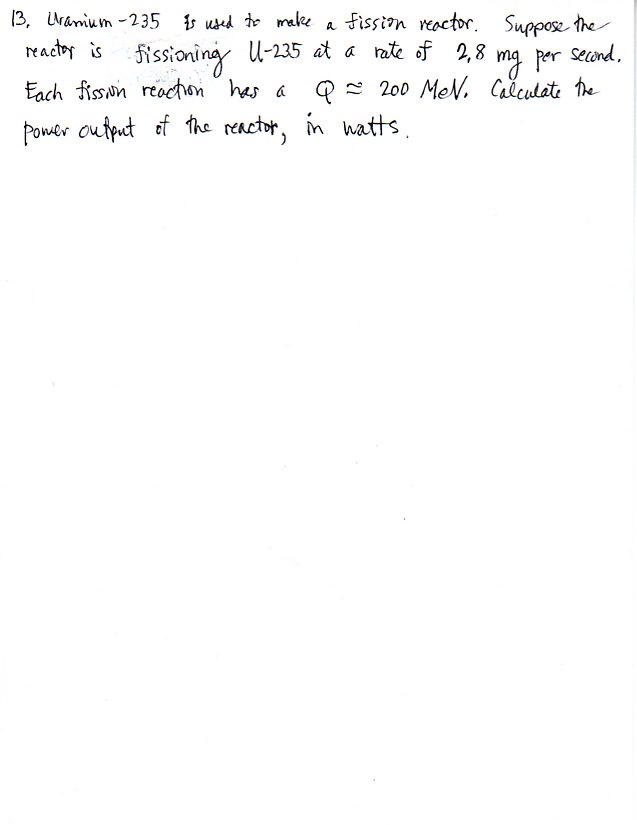 13. Uranium-235 is used to make a fission reactor. Suppose the
reactor is fissioning U-235 at a rate of 2,8 mg per second.
Each fission reaction has a Q ≃ 200 MeV. Calculate the
power output of the reactor, in watts.